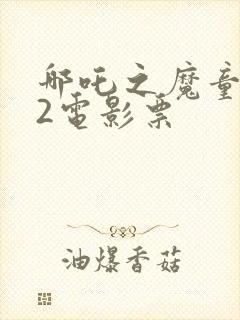 哪吒之魔童
2電影票
油爆香菇